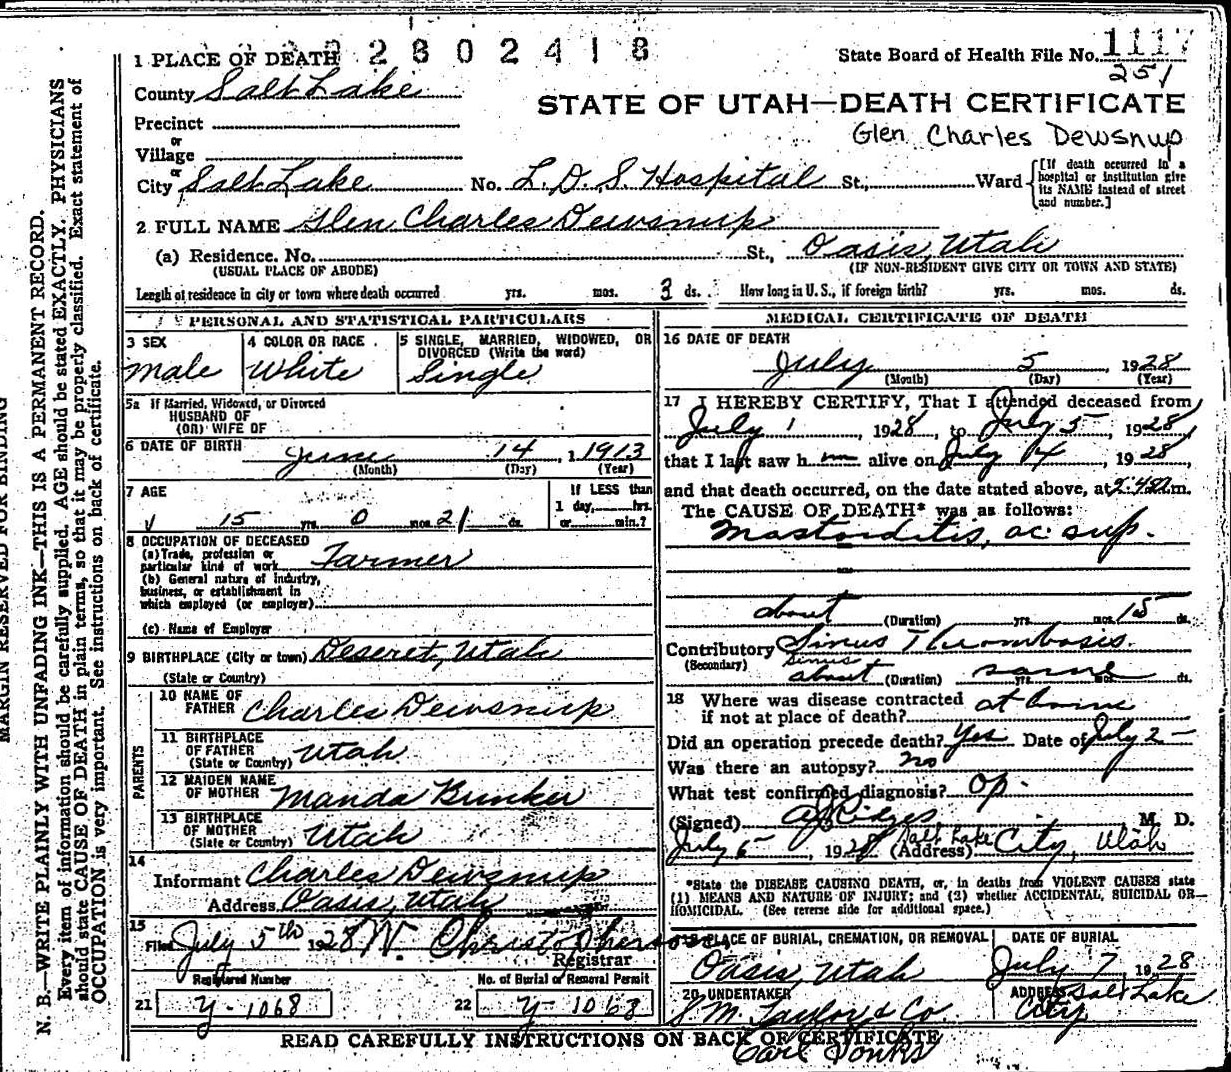 2 8 0 2 4 1 8
1 PLACE OF DEATH
State Board of Health File No. 1117
251
County Salt Lake
STATE OF UTAH—DEATH CERTIFICATE
Precinct
Glen Charles Dewsnup
or
Village
or
City Salt Lake No. L. D. S. Hospital St., Ward
[If death occurred in a hospital or institution give its NAME instead of street and number.]
2 FULL NAME Glen Charles Dewsnup
(a) Residence. No. St., Oasis, Utah
(USUAL PLACE OF ABODE) (IF NON-RESIDENT GIVE CITY OR TOWN AND STATE)
Length of residence in city or town where death occurred yrs. mos. 3 ds. How long in U. S., if foreign birth? yrs. mos. ds.
PERSONAL AND STATISTICAL PARTICULARS
3 SEX
male
4 COLOR OR RACE
White
5 SINGLE, MARRIED, WIDOWED, OR
DIVORCED (Write the word)
Single
5a If Married, Widowed, or Divorced
HUSBAND OF
(OR) WIFE OF
6 DATE OF BIRTH June 14 1913
(Month) (Day) (Year)
7 AGE
15 yrs. 0 mos. 21 ds.
If LESS than
1 day, hrs.
or min.?
8 OCCUPATION OF DECEASED
(a) Trade, profession or
particular kind of work Farmer
(b) General nature of industry,
business, or establishment in
which employed (or employer)
(c) Name of Employer
9 BIRTHPLACE (City or town) Deseret, Utah
(State or Country)
PARENTS
10 NAME OF
FATHER Charles Dewsnup
11 BIRTHPLACE
OF FATHER Utah
(State or Country)
12 MAIDEN NAME
OF MOTHER Manda Bunker
13 BIRTHPLACE
OF MOTHER Utah
(State or Country)
14
Informant Charles Dewsnup
Address Oasis, Utah
15
Filed July 5th 1928 W. Christopherson
Registrar
Registered Number
21 Y-1068
No. of Burial or Removal Permit
22 Y-1068
MEDICAL CERTIFICATE OF DEATH
16 DATE OF DEATH
July 5 1928
(Month) (Day) (Year)
17 I HEREBY CERTIFY, That I attended deceased from
July 1, 1928, to July 5, 1928,
that I last saw h im alive on July 4, 1928,
and that death occurred, on the date stated above, at m.
The CAUSE OF DEATH* was as follows:
Mastoiditis, ac. sup.
about (Duration) yrs. mos. 15 ds.
Contributory Sinus Thrombosis
(Secondary) sinus
about (Duration) same yrs. mos. ds.
18 Where was disease contracted
if not at place of death? at home
Did an operation precede death? Yes Date of July 2 -
Was there an autopsy? no
What test confirmed diagnosis? Op.
(Signed) M. D.
July 5, 1928 (Address) Salt Lake City, Utah
*State the DISEASE CAUSING DEATH, or, in deaths from VIOLENT CAUSES state
(1) MEANS AND NATURE OF INJURY; and (2) whether ACCIDENTAL, SUICIDAL OR
HOMICIDAL. (See reverse side for additional space.)
PLACE OF BURIAL, CREMATION, OR REMOVAL
Oasis, Utah
DATE OF BURIAL
July 7 1928
20 UNDERTAKER
S M. Taylor & Co
ADDRESS Salt Lake
City
READ CAREFULLY INSTRUCTIONS ON BACK OF CERTIFICATE
Carl
MARGIN RESERVED FOR BINDING
N. B.—WRITE PLAINLY WITH UNFADING INK—THIS IS A PERMANENT RECORD.
Every item of information should be carefully supplied. AGE should be stated EXACTLY. PHYSICIANS
should state CAUSE OF DEATH in plain terms, so that it may be properly classified. Exact statement of
OCCUPATION is very important. See instructions on back of certificate.